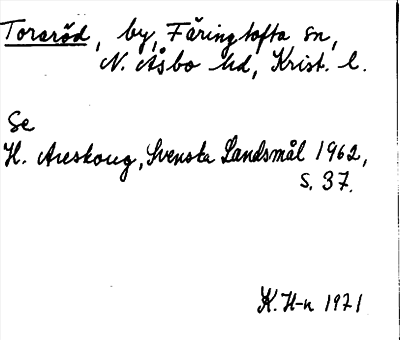 Toraröd, by, Färingtofta sn,
N. Åsbo hd, Krist. l.
Se
H. Areskoug, Svenska Landsmål 1962,
s. 37.
K. H-n 1971